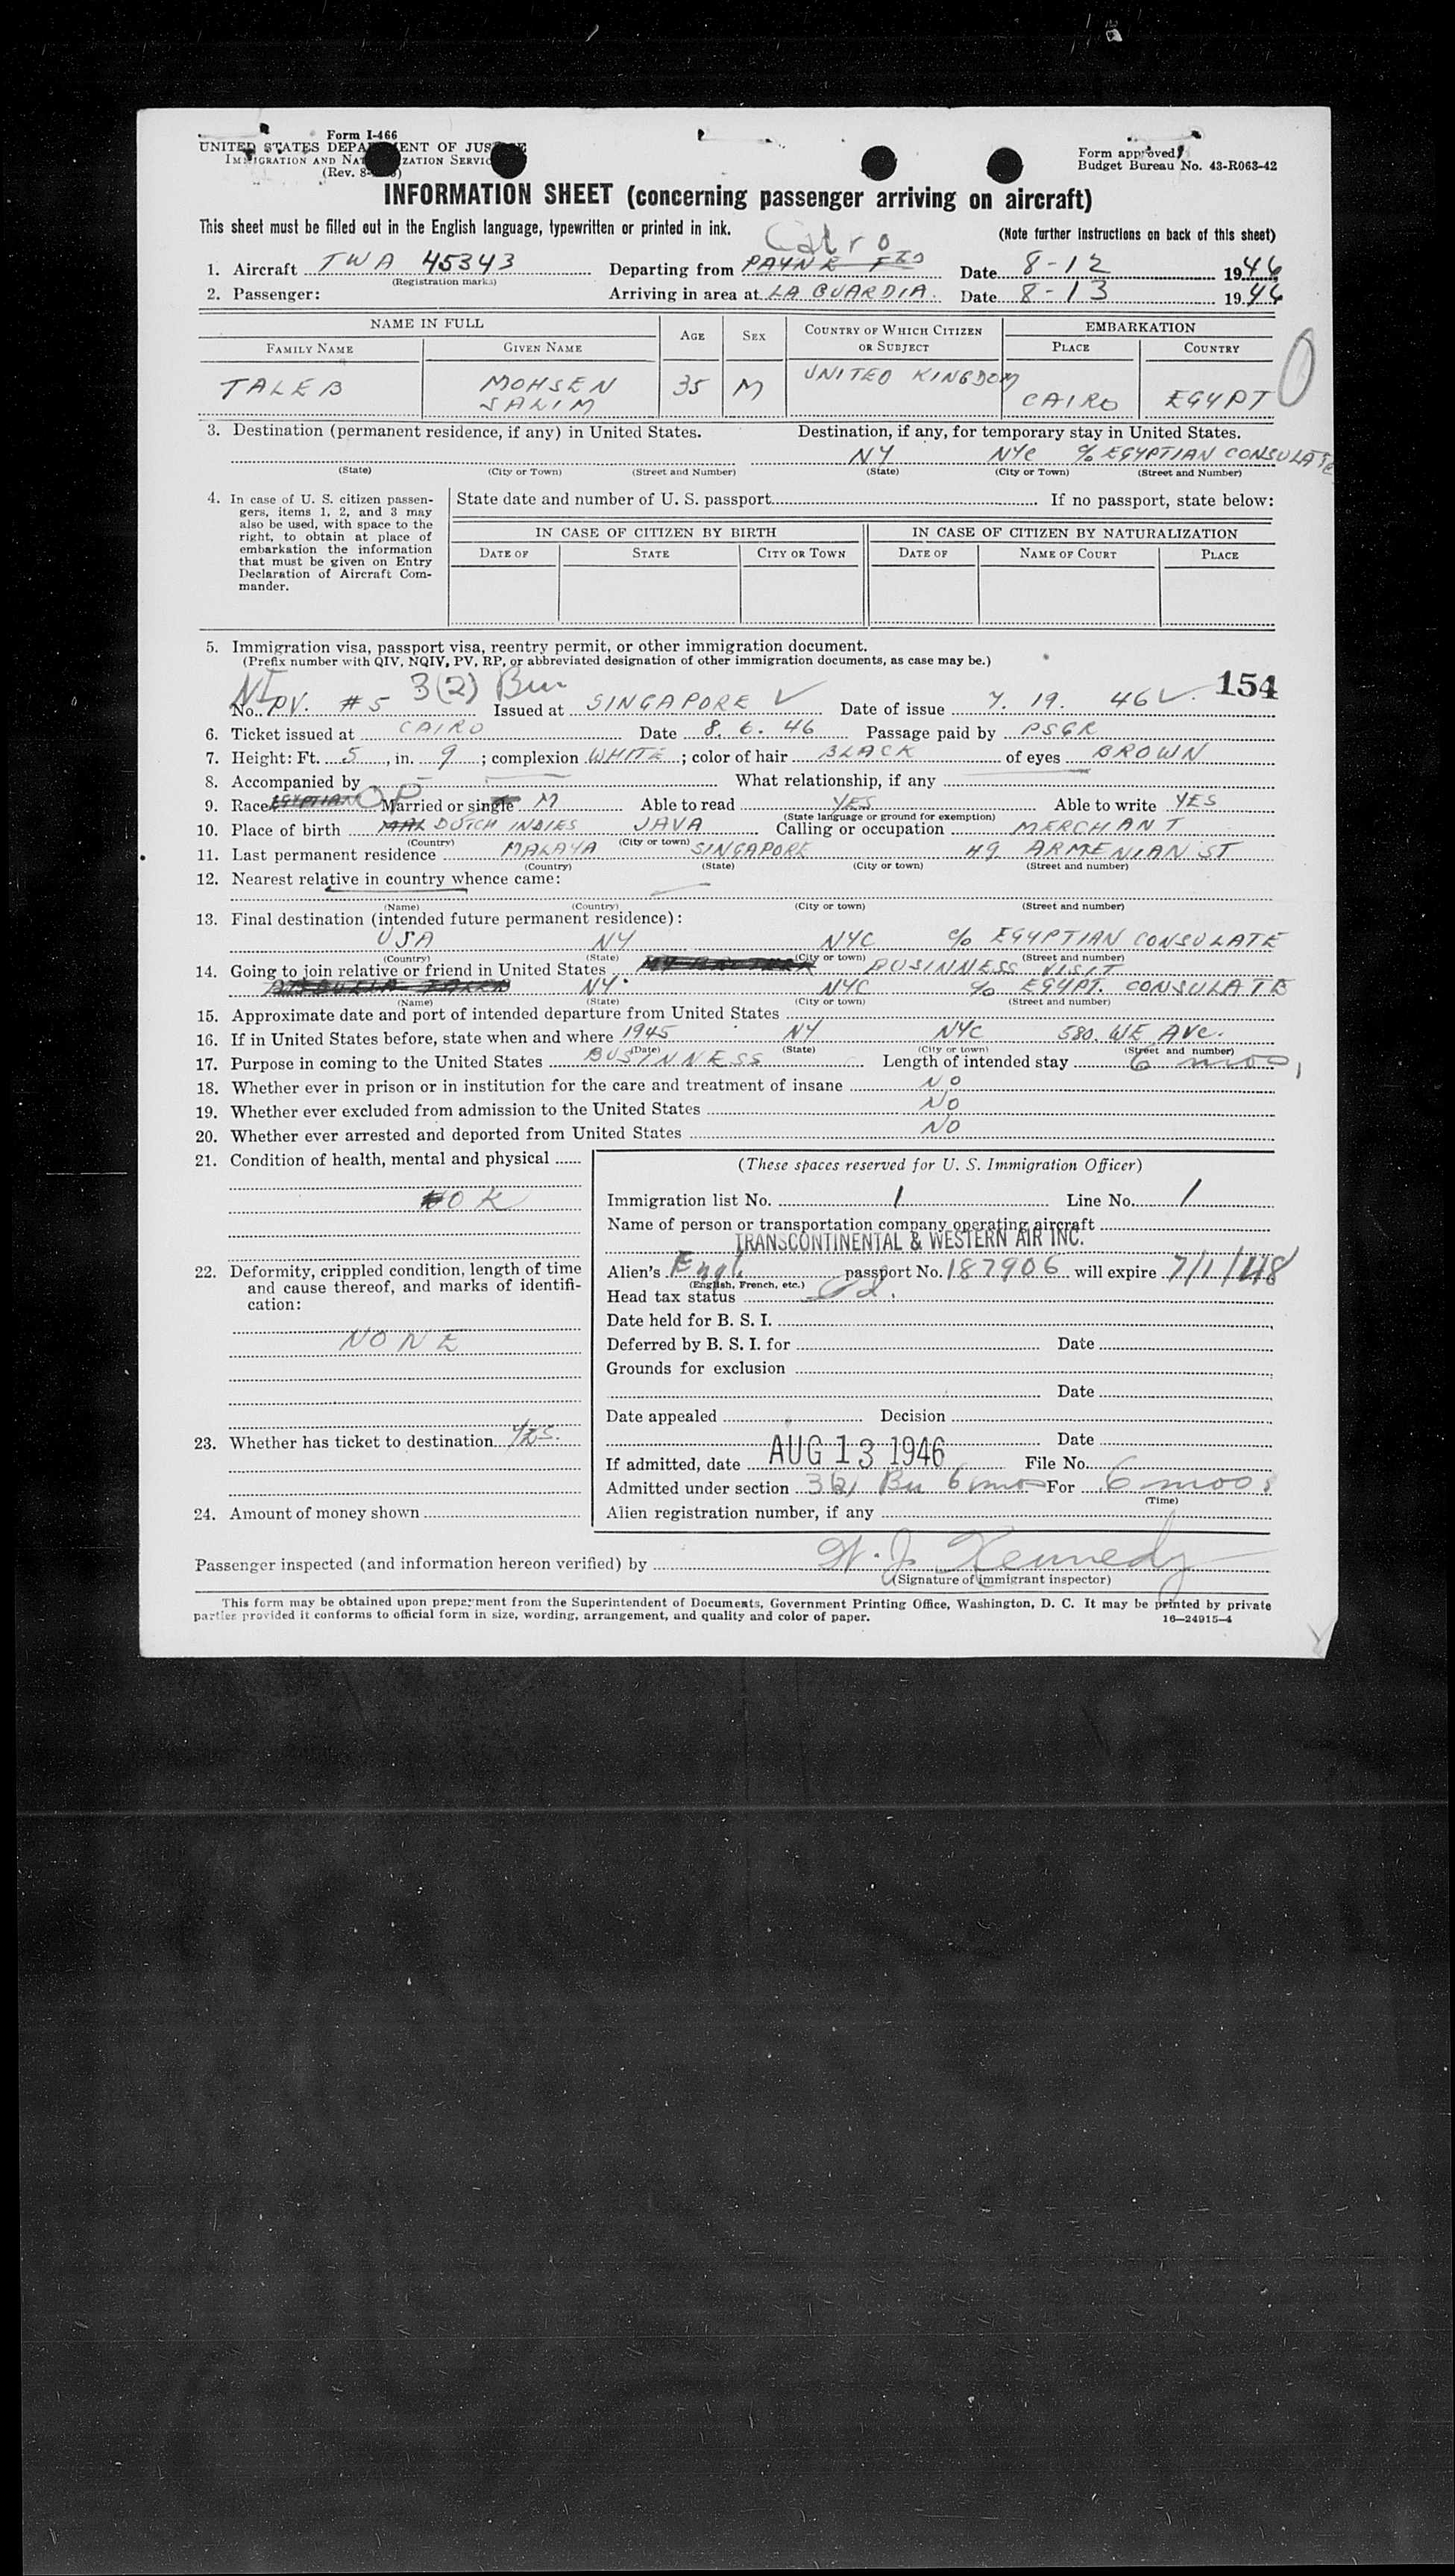 Form I-466
UNITED STATES DEPARTMENT OF JUSTICE
IMMIGRATION AND NATURALIZATION SERVICE
(Rev. 8-
Form approved
Budget Bureau No. 43-R063-42
INFORMATION SHEET (concerning passenger arriving on aircraft)
This sheet must be filled out in the English language, typewritten or printed in ink.
(Note further instructions on back of this sheet)
Cairo
1. Aircraft TWA 45343 Departing from PAYNE FLD Date 8-12 1946
(Registration marks)
2. Passenger: Arriving in area at LA GUARDIA. Date 8-13 1946
NAME IN FULL AGE SEX COUNTRY OF WHICH CITIZEN OR SUBJECT EMBARKATION
FAMILY NAME GIVEN NAME PLACE COUNTRY
TALEB MOHSEN SALIM 35 M UNITED KINGDOM CAIRO EGYPT
3. Destination (permanent residence, if any) in United States. Destination, if any, for temporary stay in United States.
NY NYC c/o EGYPTIAN CONSULATE
(State) (City or Town) (Street and Number) (State) (City or Town) (Street and Number)
4. In case of U. S. citizen passengers, items 1, 2, and 3 may also be used, with space to the right, to obtain at place of embarkation the information that must be given on Entry Declaration of Aircraft Commander.
State date and number of U. S. passport If no passport, state below:
IN CASE OF CITIZEN BY BIRTH IN CASE OF CITIZEN BY NATURALIZATION
DATE OF STATE CITY OR TOWN DATE OF NAME OF COURT PLACE
5. Immigration visa, passport visa, reentry permit, or other immigration document.
(Prefix number with QIV, NQIV, PV, RP, or abbreviated designation of other immigration documents, as case may be.)
154
NI 3(2) Bus
No. PV. #5 Issued at SINGAPORE Date of issue 7. 19. 46
6. Ticket issued at CAIRO Date 8. 6. 46 Passage paid by PSGR
7. Height: Ft. 5, in. 9; complexion WHITE; color of hair BLACK of eyes BROWN
8. Accompanied by What relationship, if any
9. Race EGYPTIAN Married or single M Able to read YES Able to write YES
(State language or ground for exemption)
10. Place of birth MAL DUTCH INDIES JAVA Calling or occupation MERCHANT
(Country) (City or town)
11. Last permanent residence MALAYA SINGAPORE 49 ARMENIAN ST
(Country) (State) (City or town) (Street and number)
12. Nearest relative in country whence came:
(Name) (Country) (City or town) (Street and number)
13. Final destination (intended future permanent residence):
USA NY NYC c/o EGYPTIAN CONSULATE
(Country) (State) (City or town) (Street and number)
14. Going to join relative or friend in United States BUSINNESS VISIT
NY. NYC c/o EGYPT. CONSULATE
(Name) (State) (City or town) (Street and number)
15. Approximate date and port of intended departure from United States
16. If in United States before, state when and where 1945 NY NYC 580. WE AVE.
(Date) (State) (City or town) (Street and number)
17. Purpose in coming to the United States BUSINNESS Length of intended stay 6 mos
18. Whether ever in prison or in institution for the care and treatment of insane NO
19. Whether ever excluded from admission to the United States NO
20. Whether ever arrested and deported from United States NO
21. Condition of health, mental and physical
OK
22. Deformity, crippled condition, length of time and cause thereof, and marks of identification:
NONE
23. Whether has ticket to destination YES.
24. Amount of money shown
(These spaces reserved for U. S. Immigration Officer)
Immigration list No. 1 Line No. 1
Name of person or transportation company operating aircraft
TRANSCONTINENTAL & WESTERN AIR INC.
Alien's Engl. passport No. 187906 will expire 7/1/48
(English, French, etc.)
Head tax status
Date held for B. S. I.
Deferred by B. S. I. for Date
Grounds for exclusion
Date
Date appealed Decision
Date
If admitted, date AUG 13 1946 File No.
Admitted under section 3(2) Bu 6 mos For 6 mos
(Time)
Alien registration number, if any
Passenger inspected (and information hereon verified) by W. J. Kennedy
(Signature of immigrant inspector)
This form may be obtained upon prepayment from the Superintendent of Documents, Government Printing Office, Washington, D. C. It may be printed by private
parties provided it conforms to official form in size, wording, arrangement, and quality and color of paper.
16—24915-4